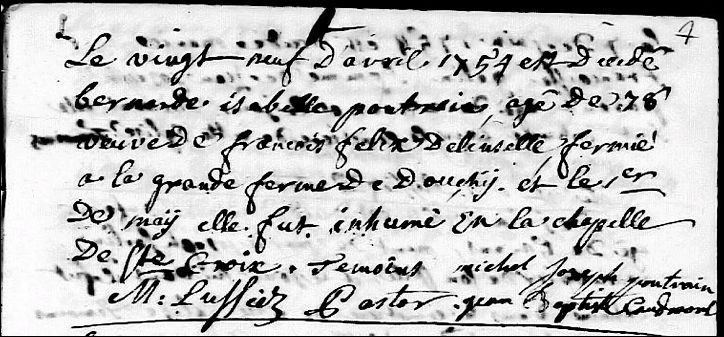 4
Le vingt neuf d'avril 1754 est decedé
bernarde isabelle poutrain, agé de 78
veuve de françois felix Delinselle, fermié
a la grande ferme de Douchÿ. et le 1er
De maÿ elle fut inhumé En la chapelle
De Ste Croix. Temoins michel Joseph poutrain
M: Pastor. jean Baptiste